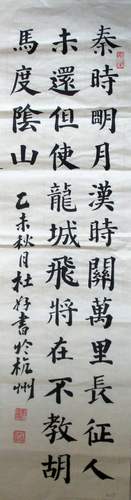 秦時明月漢時關萬里長征人
未還但使龍城飛將在不教胡
馬度陰山
乙未秋月杜好書於杭州